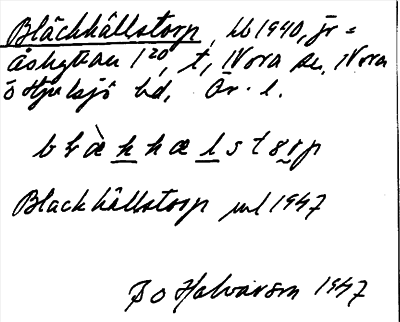 Bläckhällstorp, hb 1940, jr =
åskyttau 1²⁰, t, Nora sn, Nora
o Hjulsjö hd, Ör. l.
blækhælstørp
Blackhällstorp uml 1947
B o Halvarson 1947